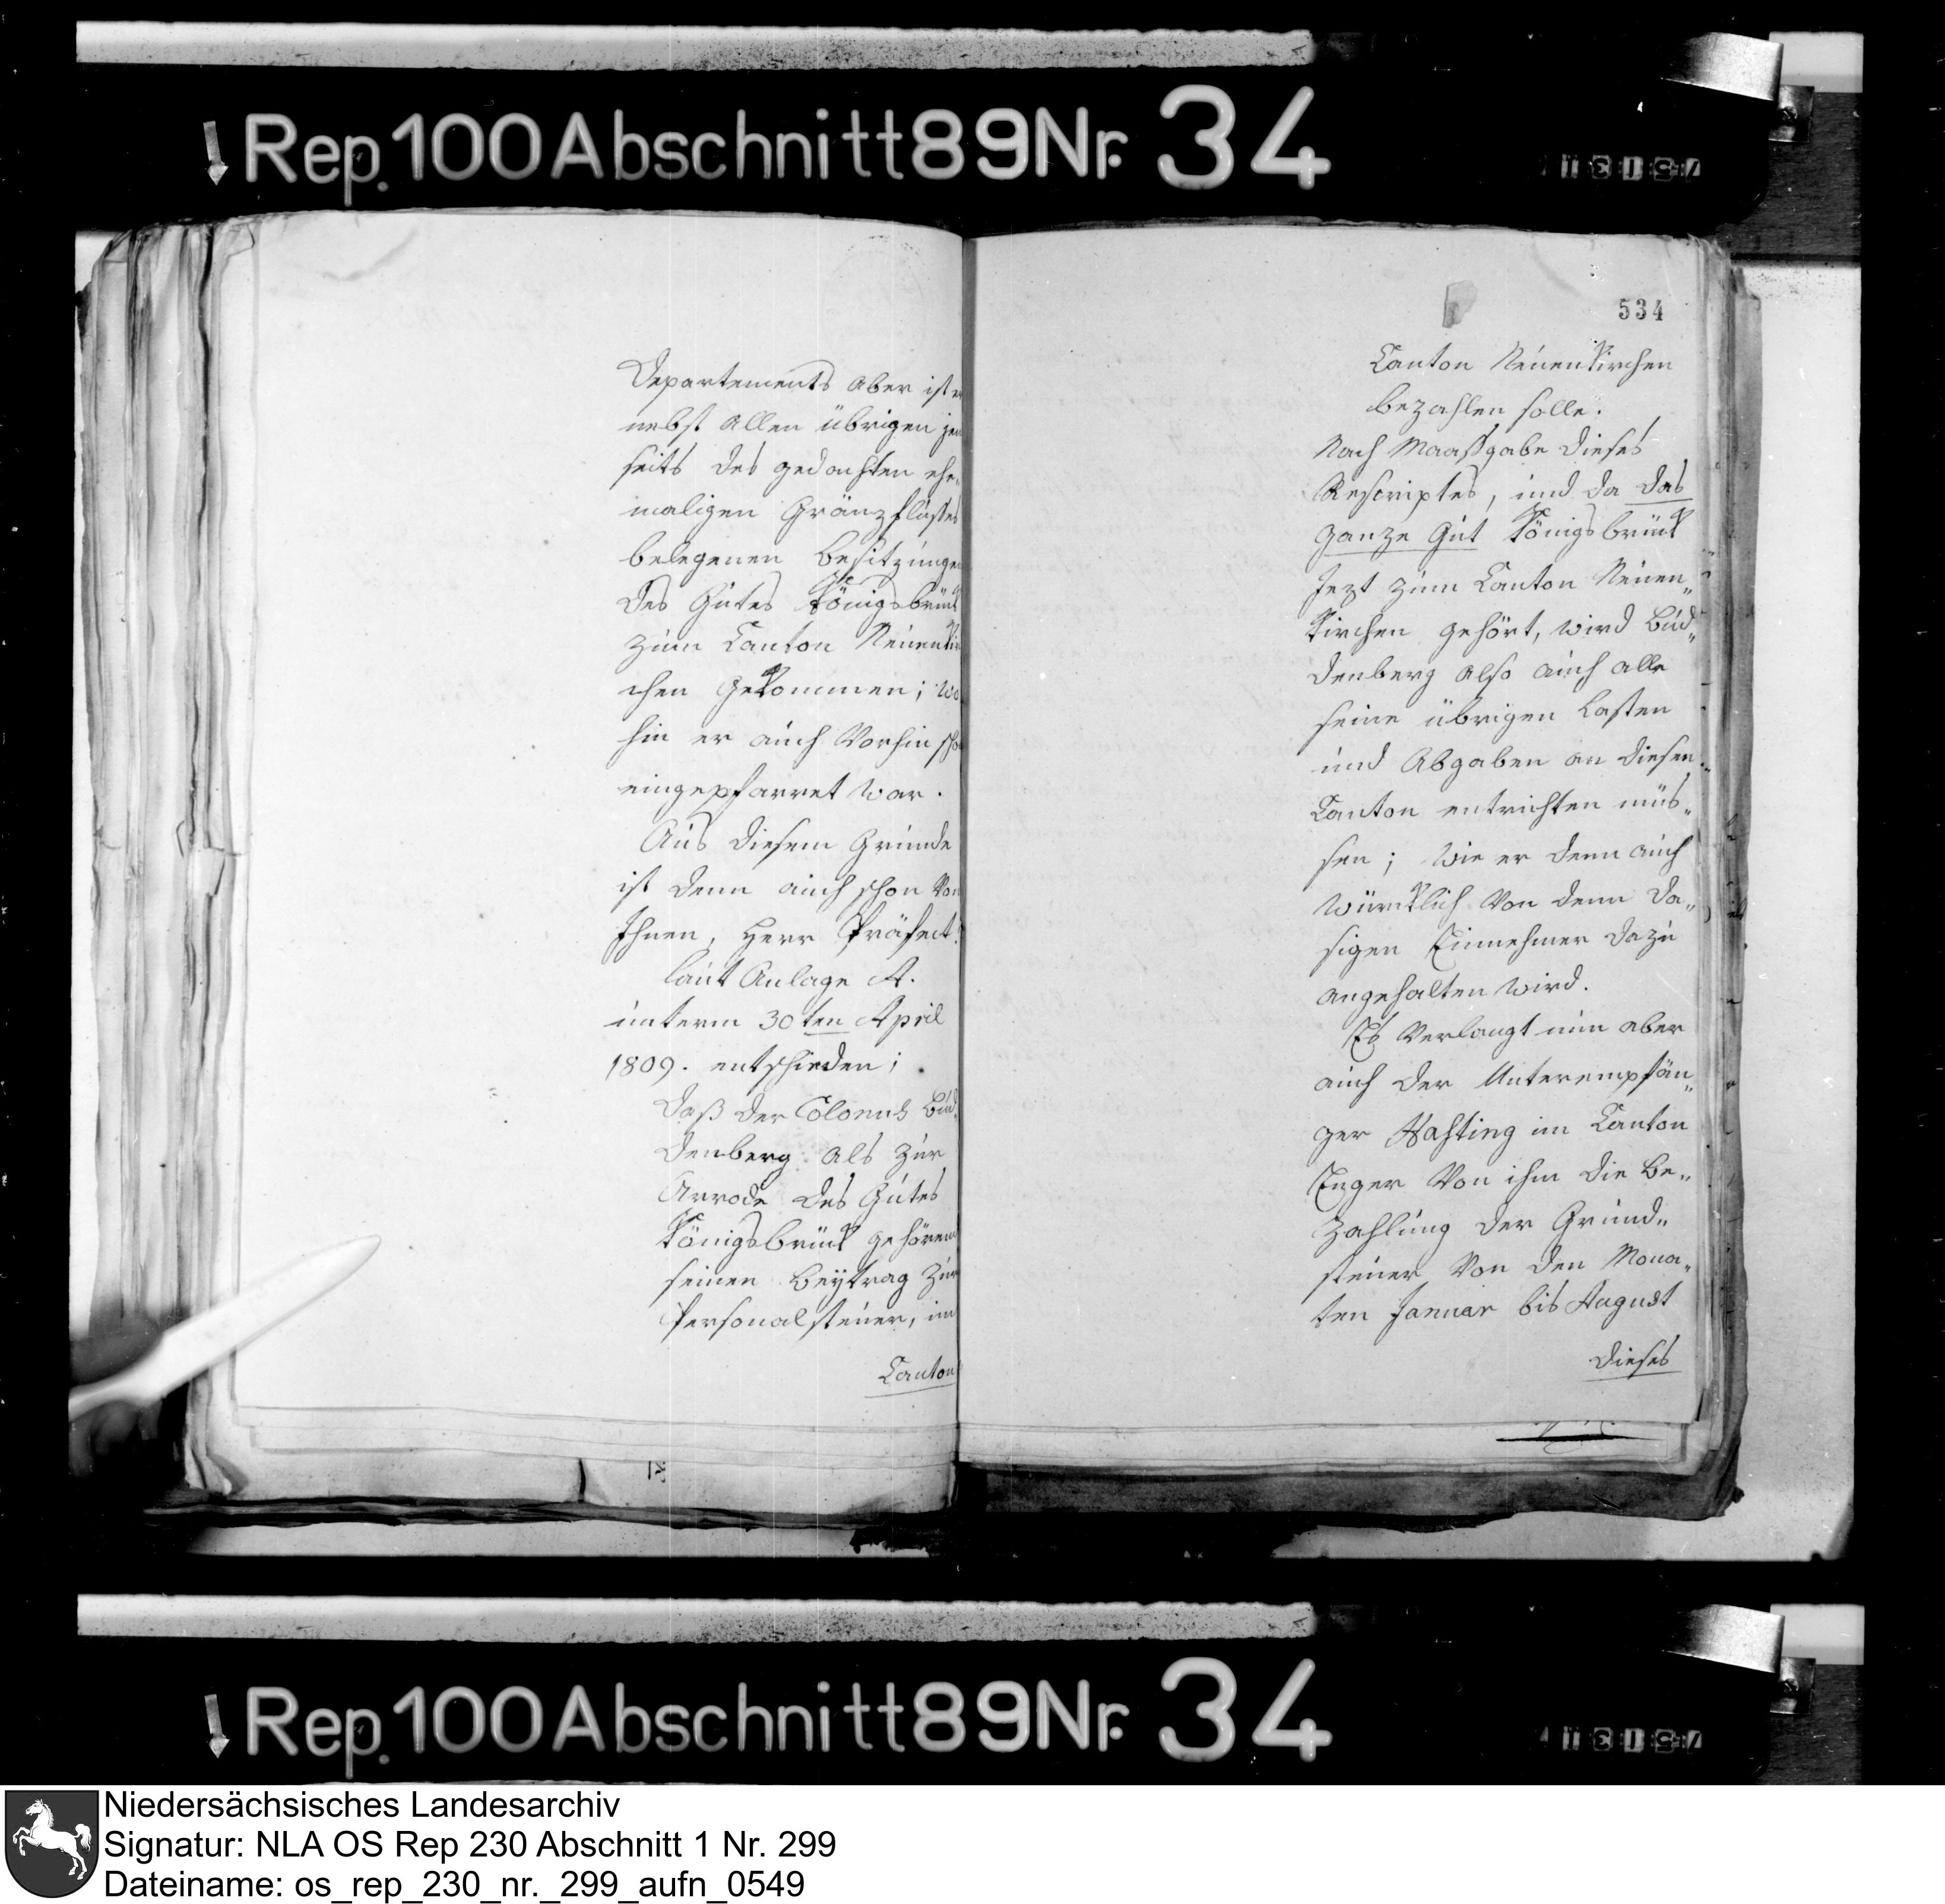 Rep. 100 Abschnitt 89 Nr. 34
Departements aber ist er
nebst allen übrigen jen
seits des gedachten ehe„
maligen Gränzflusses
belegenen Besitzungen
des Gutes Königsbrück
zum Canton Neuenkir
chen gekommen; wo
hin er auch vorhin schon
eingepfarret war.
Aus diesem Grunde
ist denn auch schon von
Ihnen, Herr Präfect!
laut Anlage A.
unterm 30ten April
1809. entschieden;
daß der Colonus Bud„
denberg als zur
Arrode des Gutes
Königsbrück gehörend
seinen Beytrag zur
Personalsteuer, im
Canton
534
Canton Neuenkirchen
bezahlen solle.
Nach Maaßgabe dieses
Rescriptes, und da das
ganze Gut Königsbrück
jezt zum Canton Neuen„
kirchen gehört, wird Bud„
denberg also auch alle
seine übrigen Lasten
und Abgaben an diesen
Canton entrichten müs„
sen; wie er denn auch
würcklich von dem da„
sigen Einnehmer dazu
angehalten wird.
Es verlangt nun aber
auch der Unterempfän„
ger Hasting im Canton
Enger von ihm die Be„
zahlung der Grund„
steuer von den Mona„
ten Januar bis August
dieses
Rep. 100 Abschnitt 89 Nr. 34
Niedersächsisches Landesarchiv
Signatur: NLA OS Rep 230 Abschnitt 1 Nr. 299
Dateiname: os_rep_230_nr._299_aufn_0549